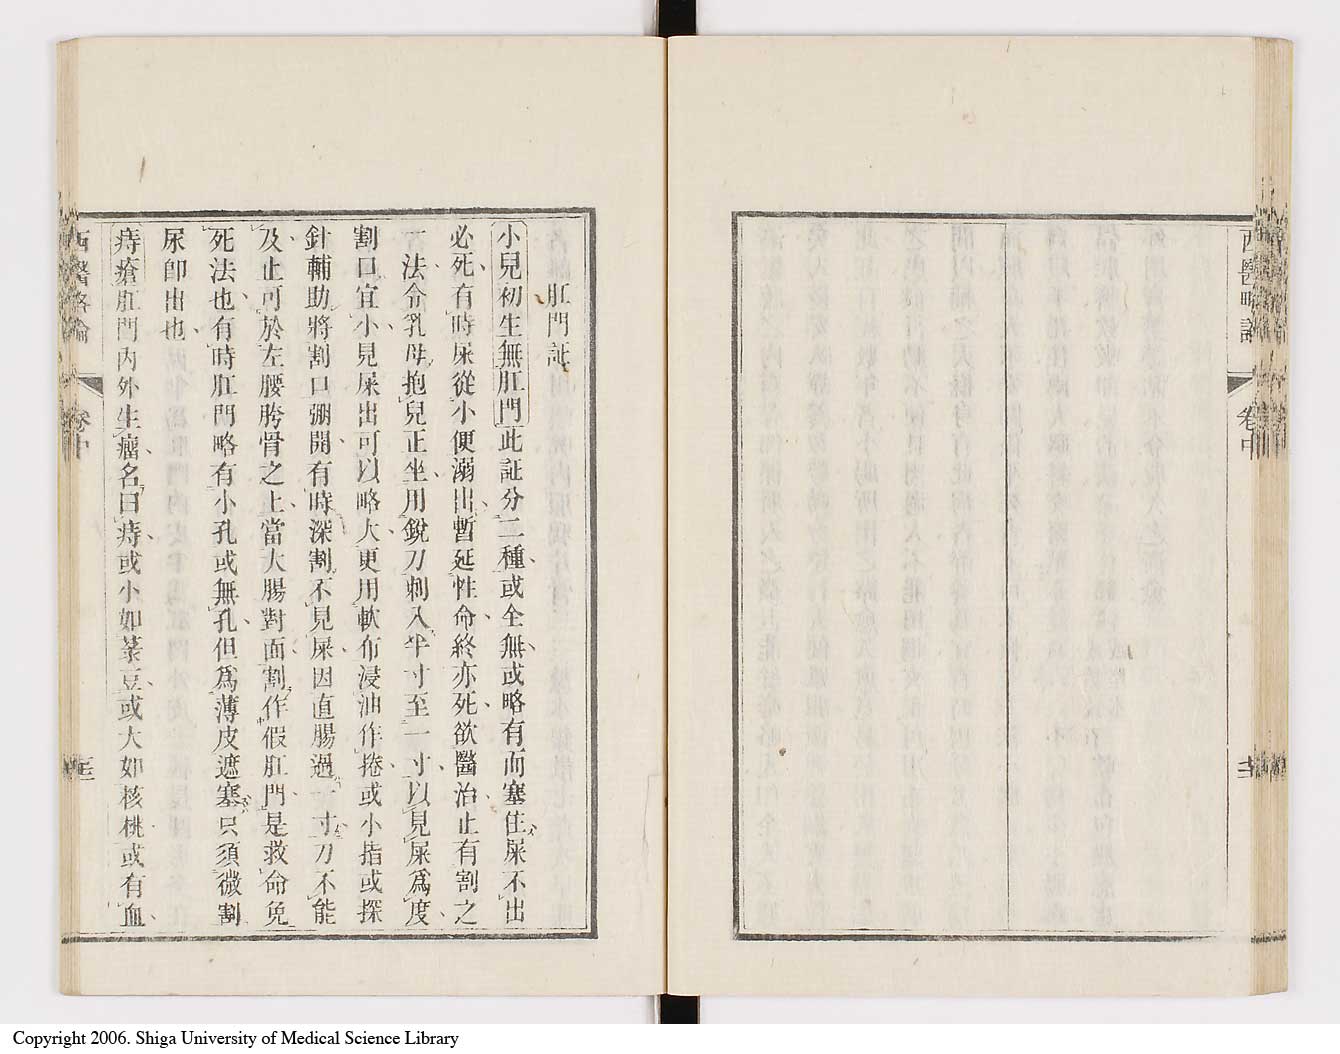 西醫略論
卷中
肛門証
小兒初生無肛門此証分二種或全無或略有而塞住屎不出
必死有時屎從小便溺出暫延性命終亦死欲醫治止有割之
一法令乳母抱兒正坐用銳刀刺入半寸至一寸以見屎爲度
割口宜小見屎出可以略大更用軟布浸油作捲或小指或探
針輔助將割口弸開有時深割不見屎因直腸過一寸刀不能
及止可於左腰胯骨之上當大腸對面割作假肛門是救命免
死法也有時肛門略有小孔或無孔但爲薄皮遮塞只須微割
屎卽出也
痔瘡肛門內外生瘤名曰痔或小如菉豆或大如核桃或有血
西醫略論
卷中
Copyright 2006. Shiga University of Medical Science Library